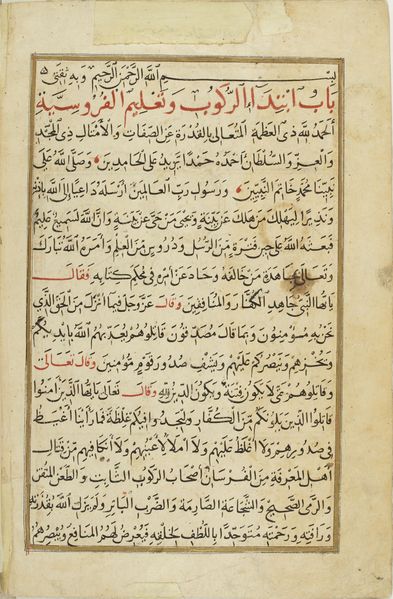 بسم الله الرحمن الرحيم وبه ثقتي
باب ابتداء الركوب وتعليم الفروسية
الحمد لله ذي العظمة المتعالي بالقدرة عن الصفات والأمثال ذي المجد
والعز والسلطان أحمده حمدا يزيد على الحامدين وصلى الله على
نبينا محمد خاتم النبيين ورسول رب العالمين أرسله داعيا إلى الله بإذنه
ونذيرا ليهلك من هلك عن بينة ويحيى من حي عن بينة وان الله لسميع عليم
فبعثه الله على حين فترة من الرسل ودروس من العلم وأمره الله تبارك
وتعالى بمجاهدة من خالفه وحاد عن أمره في محكم كتابه فقال
يا أيها النبي جاهد الكفار والمنافقين وقال عز وجل فيما أنزل من الحق الذي
نحن به مؤمنون وبما قال مصدقون قاتلوهم يعذبهم الله بأيديكم
ويخزهم وينصركم عليهم ويشف صدور قوم مؤمنين وقال تعالى
وقاتلوهم حتى لا تكون فتنة ويكون الدين لله وقال تعالى يا أيها الذين آمنوا
قاتلوا الذين يلونكم من الكفار وليجدوا فيكم غلظة فرأينا أغيظ
في صدورهم ولا أغلظ عليهم ولا أملأ لأعينهم ولا أنكى فيهم من قتال
أهل المعرفة من الفرسان أصحاب الركوب الثابت والطعن المتقن
والرمي الصحيح والشجاعة الصارمة والضرب الباتر ولم يزل الله بقدرته
ورأفته ورحمته متوحدا باللطف لخلقه فيعرض لهم المنافع ويبصرهم